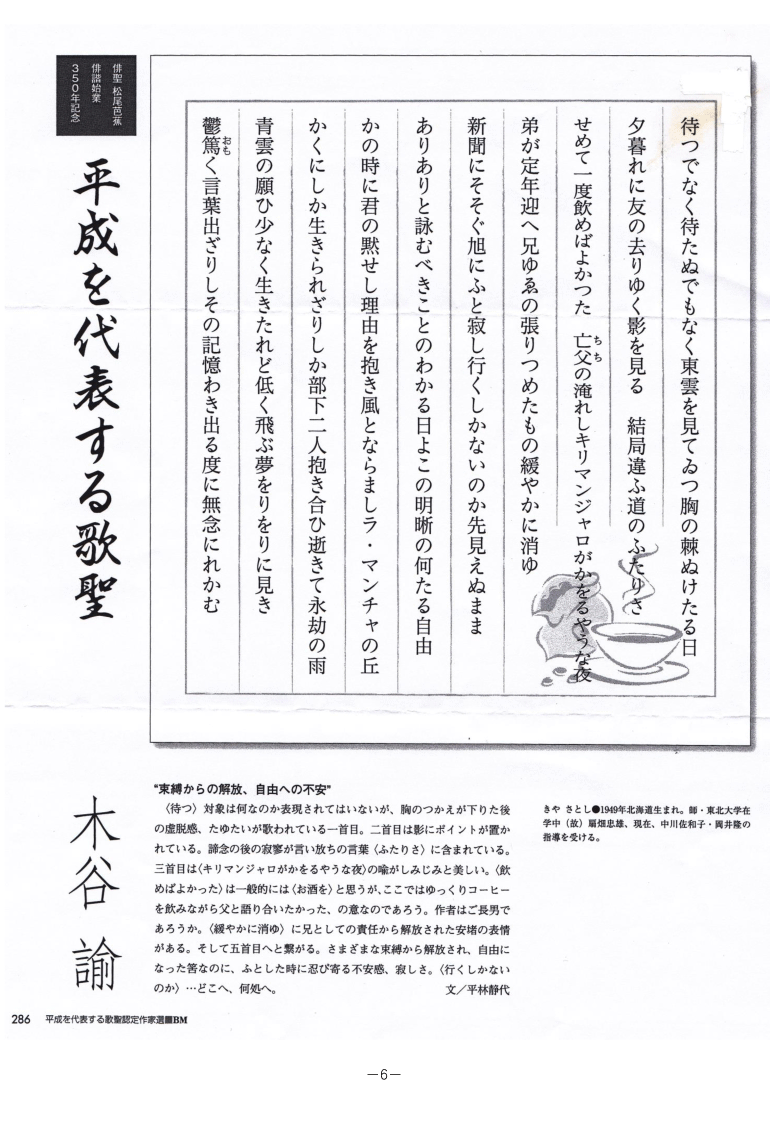 俳聖 松尾芭蕉
俳諧始業
350年記念
平成を代表する歌聖
待つでなく待たぬでもなく東雲を見てゐつ胸の棘ぬけたる日
夕暮れに友の去りゆく影を見る　結局違ふ道のふたりさ
せめて一度飲めばよかつた　亡父の淹れしキリマンジャロがかをるやうな夜
ちち
弟が定年迎へ兄ゆゑの張りつめたもの緩やかに消ゆ
新聞にそそぐ旭にふと寂し行くしかないのか先見えぬまま
ありありと詠むべきことのわかる日よこの明晰の何たる自由
かの時に君の黙せし理由を抱き風とならましラ・マンチャの丘
かくにしか生きられざりしか部下二人抱き合ひ逝きて永劫の雨
青雲の願ひ少なく生きたれど低く飛ぶ夢をりをりに見き
鬱篤く言葉出ざりしその記憶わき出る度に無念にれかむ
おも
木谷 諭
"束縛からの解放、自由への不安"
〈待つ〉対象は何なのか表現されてはいないが、胸のつかえが下りた後
の虚脱感、たゆたいが歌われている一首目。二首目は影にポイントが置か
れている。諦念の後の寂寥が言い放ちの言葉〈ふたりさ〉に含まれている。
三首目は〈キリマンジャロがかをるやうな夜〉の喩がしみじみと美しい。〈飲
めばよかった〉は一般的には〈お酒を〉と思うが、ここではゆっくりコーヒー
を飲みながら父と語り合いたかった、の意なのであろう。作者はご長男で
あろうか。〈緩やかに消ゆ〉に兄としての責任から解放された安堵の表情
がある。そして五首目へと繋がる。さまざまな束縛から解放され、自由に
なった筈なのに、ふとした時に忍び寄る不安感、寂しさ。〈行くしかない
のか〉…どこへ、何処へ。
文／平林静代
きや さとし●1949年北海道生まれ。師・東北大学在
学中（故）扇畑忠雄、現在、中川佐和子・岡井隆の
指導を受ける。
286 平成を代表する歌聖認定作家選■BM
―6―